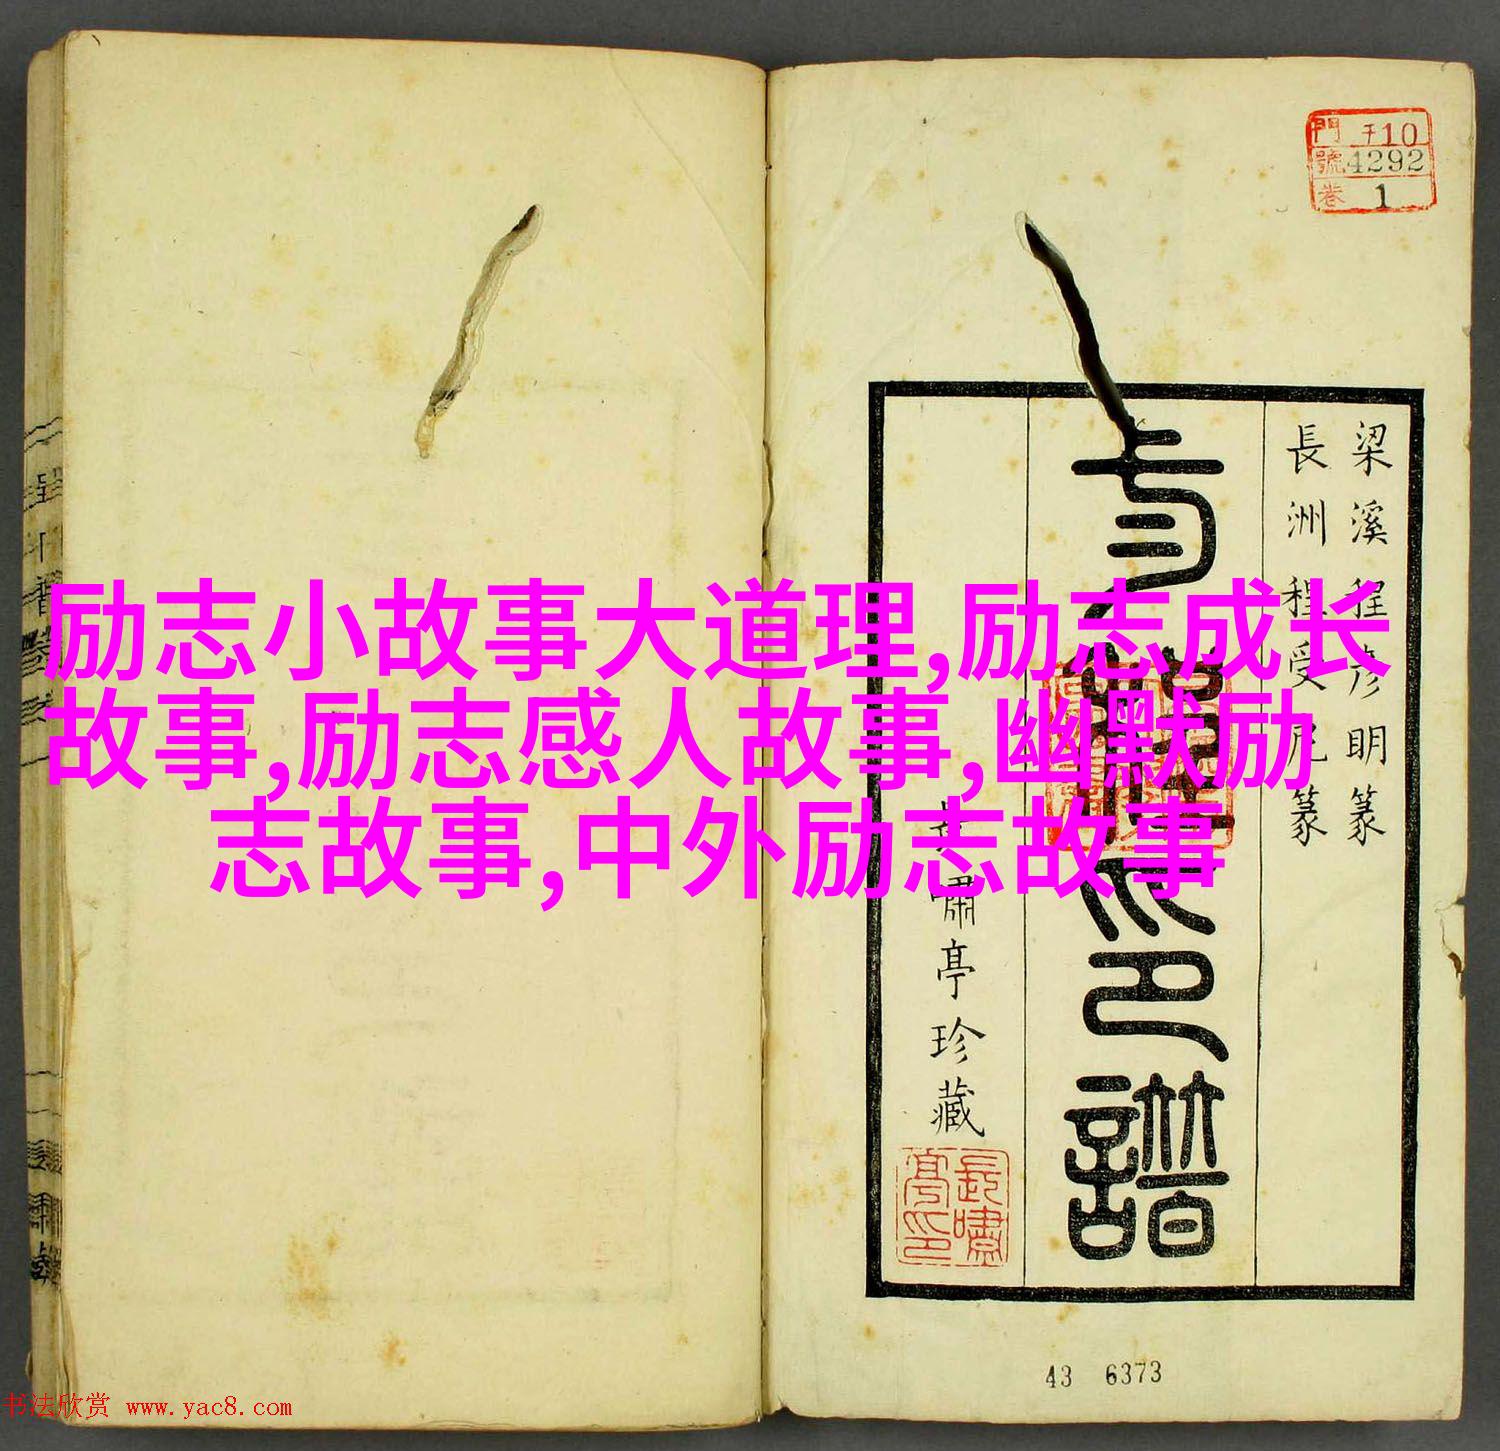 門 于10
號 4292
卷 1
梁溪程彦明篆
長洲程受尼篆
考槃印譜
長嘯亭珍藏
励志小故事大道理,励志成长
故事,励志感人故事,幽默励
志故事,中外励志故事
43 6373
书法欣赏 www.yac8.com